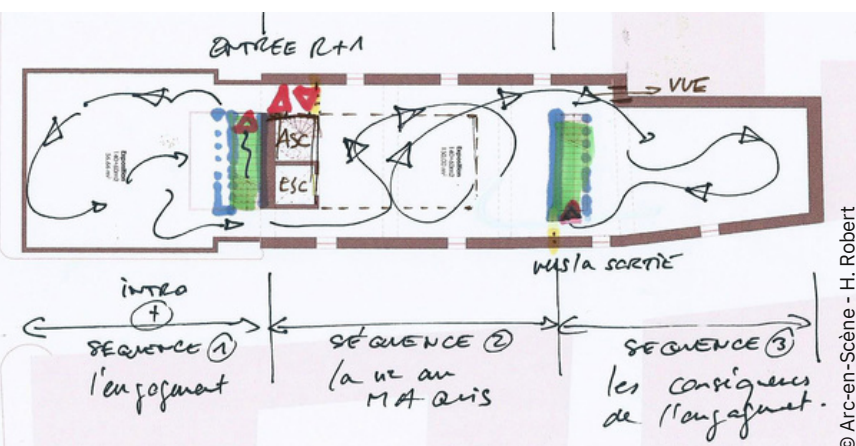 ENTREE R+1
VUE
ASC
ESC
Exposition
Exposition
vers la SORTIE
INTRO
+
SEQUENCE 1
l'engagement
SÉQUENCE 2
la vie au
MAQUIS
SEQUENCE 3
les conséquences
de l'engagement.
© Arc-en-Scène - H. Robert